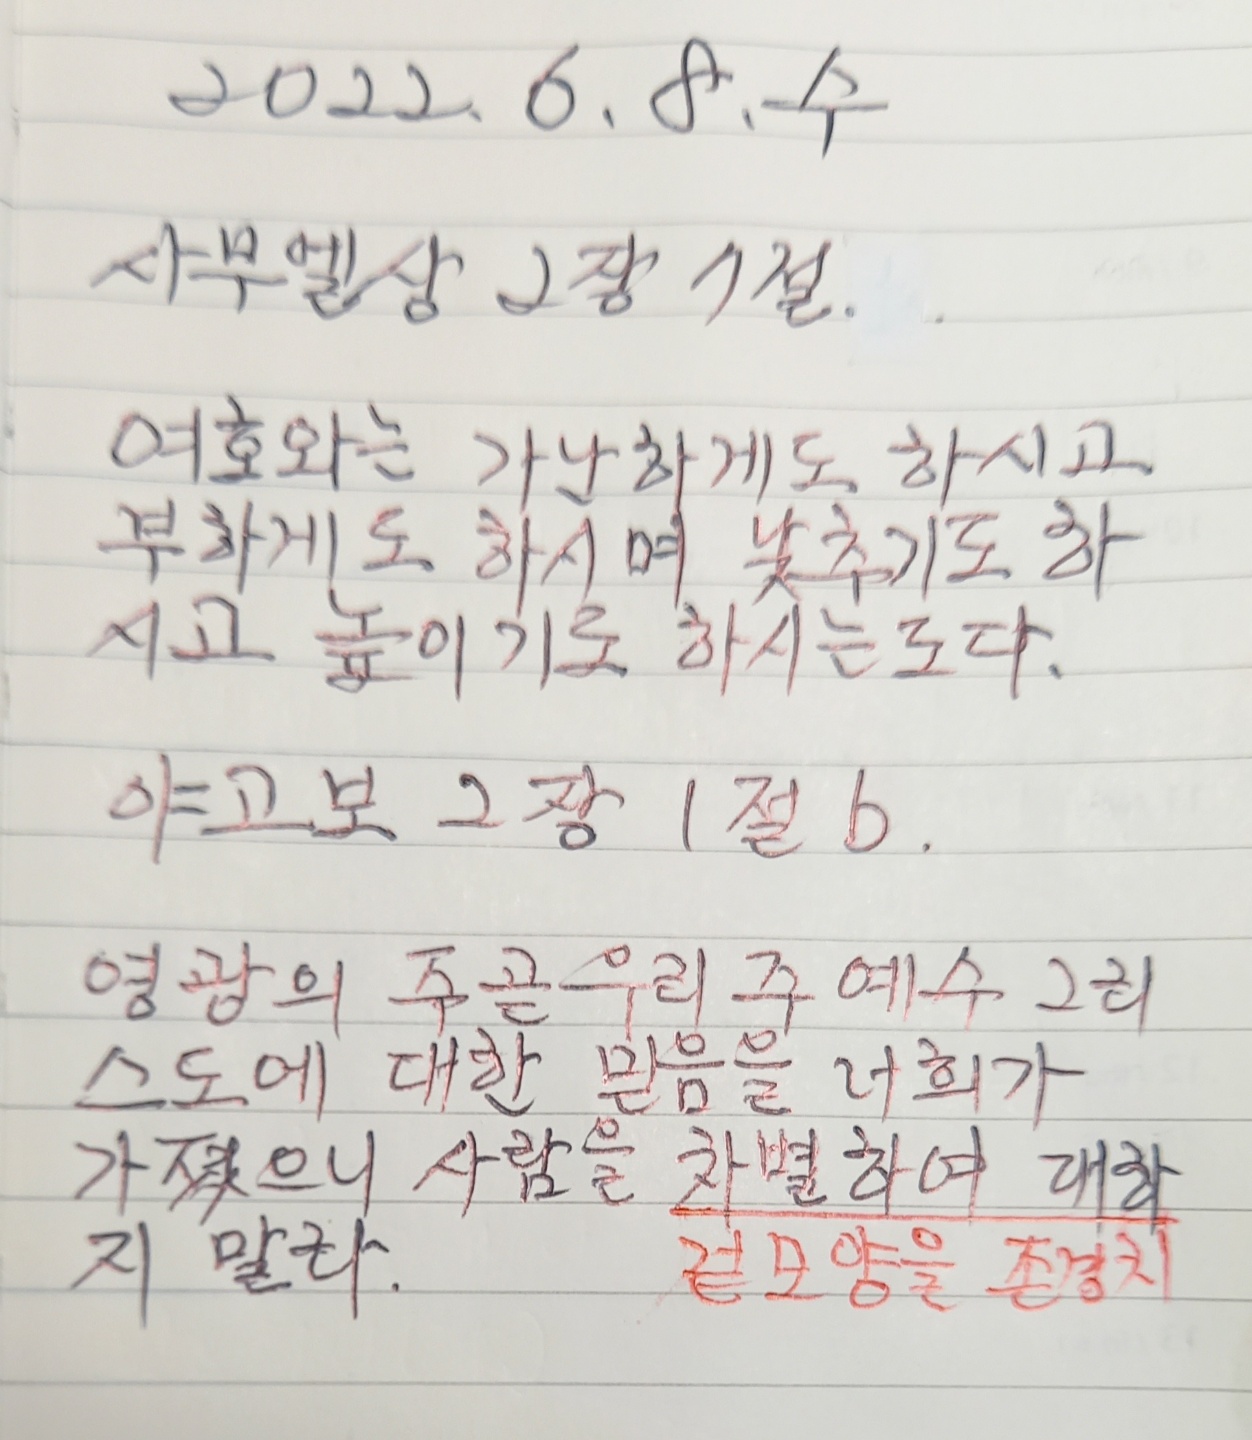 2022. 6. 8. 수
사무엘상 2장 7절.
여호와는 가난하게도 하시고
부하게도 하시며 낮추기도 하
시고 높이기도 하시는도다.
야고보 2장 1절 b.
영광의 주 곧 우리 주 예수 그리
스도에 대한 믿음을 너희가
가졌으니 사람을 차별하여 대하
지 말라. 겉모양을 존경치